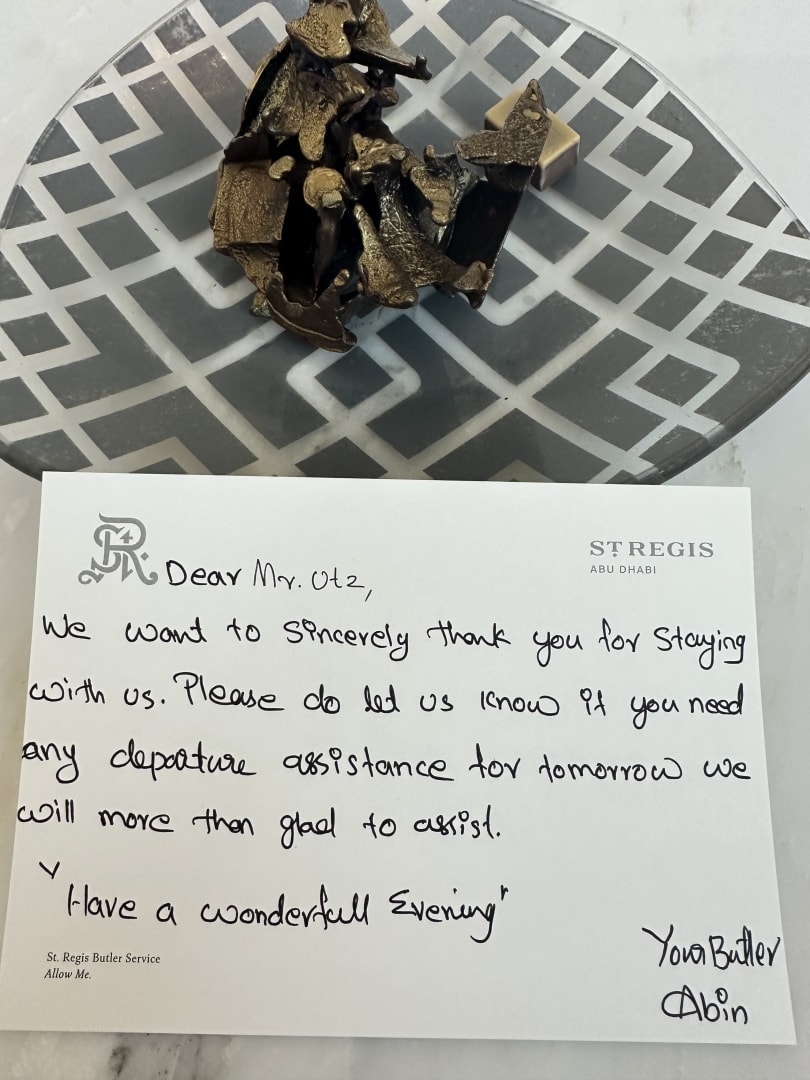 ST REGIS
ABU DHABI
Dear Mr. Utz,
We want to Sincerely thank you for Staying
with us. Please do let us know if you need
any depature assistance for tomorrow we
will more then glad to assist.
"Have a wonderfull Evening"
Your Butler
Abin
St. Regis Butler Service
Allow Me.